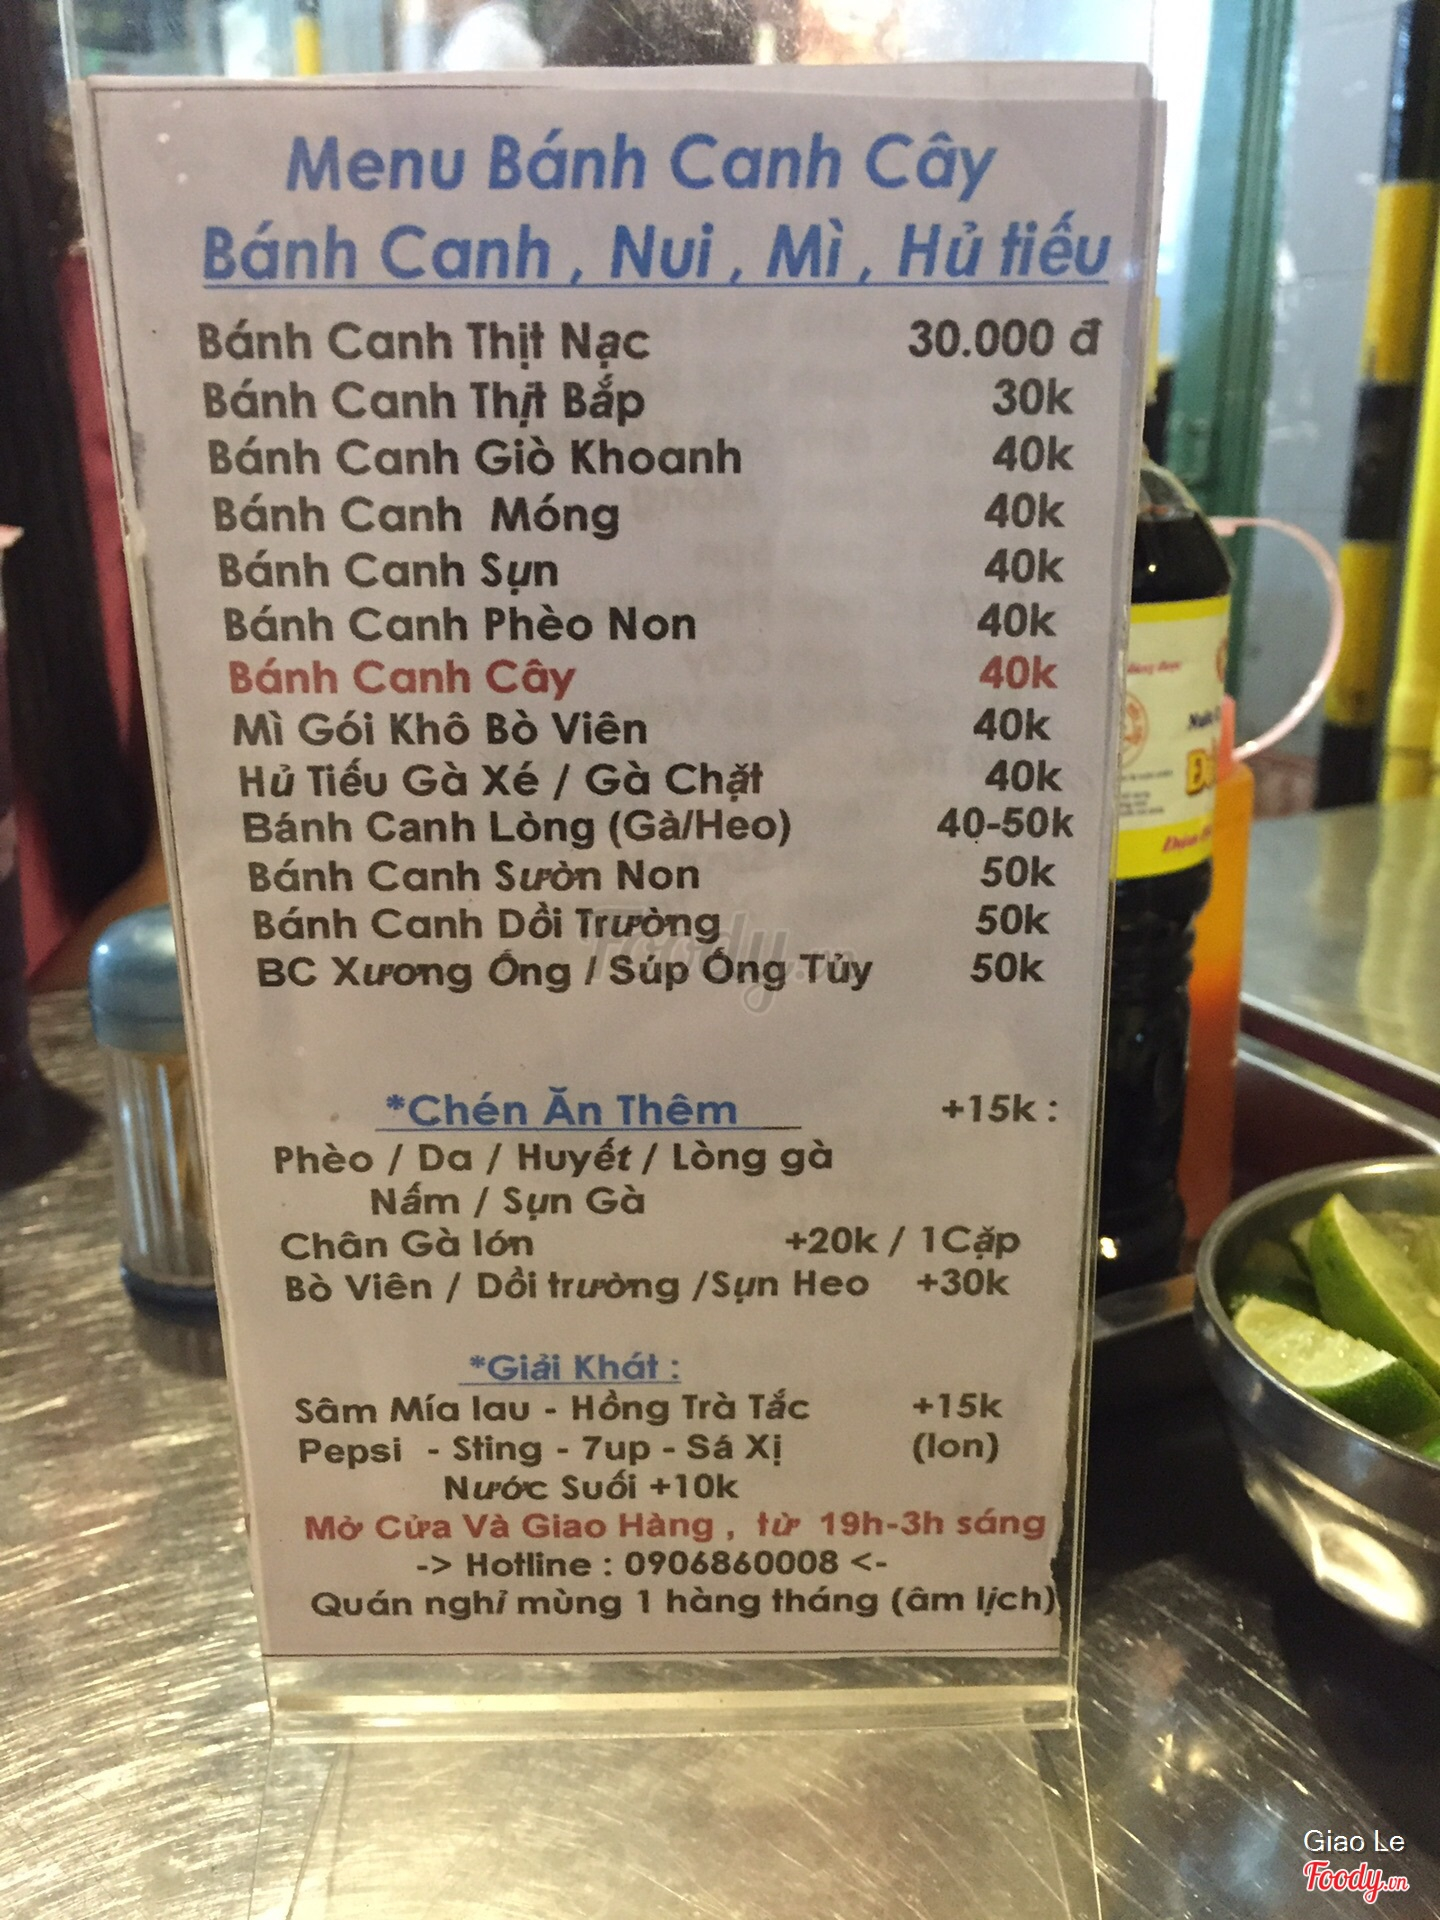 Menu Bánh Canh Cây
Bánh Canh , Nui , Mì , Hủ tiếu
Bánh Canh Thịt Nạc 30.000 đ
Bánh Canh Thịt Bắp 30k
Bánh Canh Giò Khoanh 40k
Bánh Canh Móng 40k
Bánh Canh Sụn 40k
Bánh Canh Phèo Non 40k
Bánh Canh Cây 40k
Mì Gói Khô Bò Viên 40k
Hủ Tiếu Gà Xé / Gà Chặt 40k
Bánh Canh Lòng (Gà/Heo) 40-50k
Bánh Canh Sườn Non 50k
Bánh Canh Dồi Trường 50k
BC Xương Ống / Súp Ống Tủy 50k
Foody.vn
*Chén Ăn Thêm +15k :
Phèo / Da / Huyết / Lòng gà
Nấm / Sụn Gà
Chân Gà lớn +20k / 1Cặp
Bò Viên / Dồi trường /Sụn Heo +30k
*Giải Khát :
Sâm Mía lau - Hồng Trà Tắc +15k
Pepsi - Sting - 7up - Sá Xị (lon)
Nước Suối +10k
Mở Cửa Và Giao Hàng , từ 19h-3h sáng
-> Hotline : 0906860008 <-
Quán nghỉ mùng 1 hàng tháng (âm lịch)
Giao Le
Foody.vn